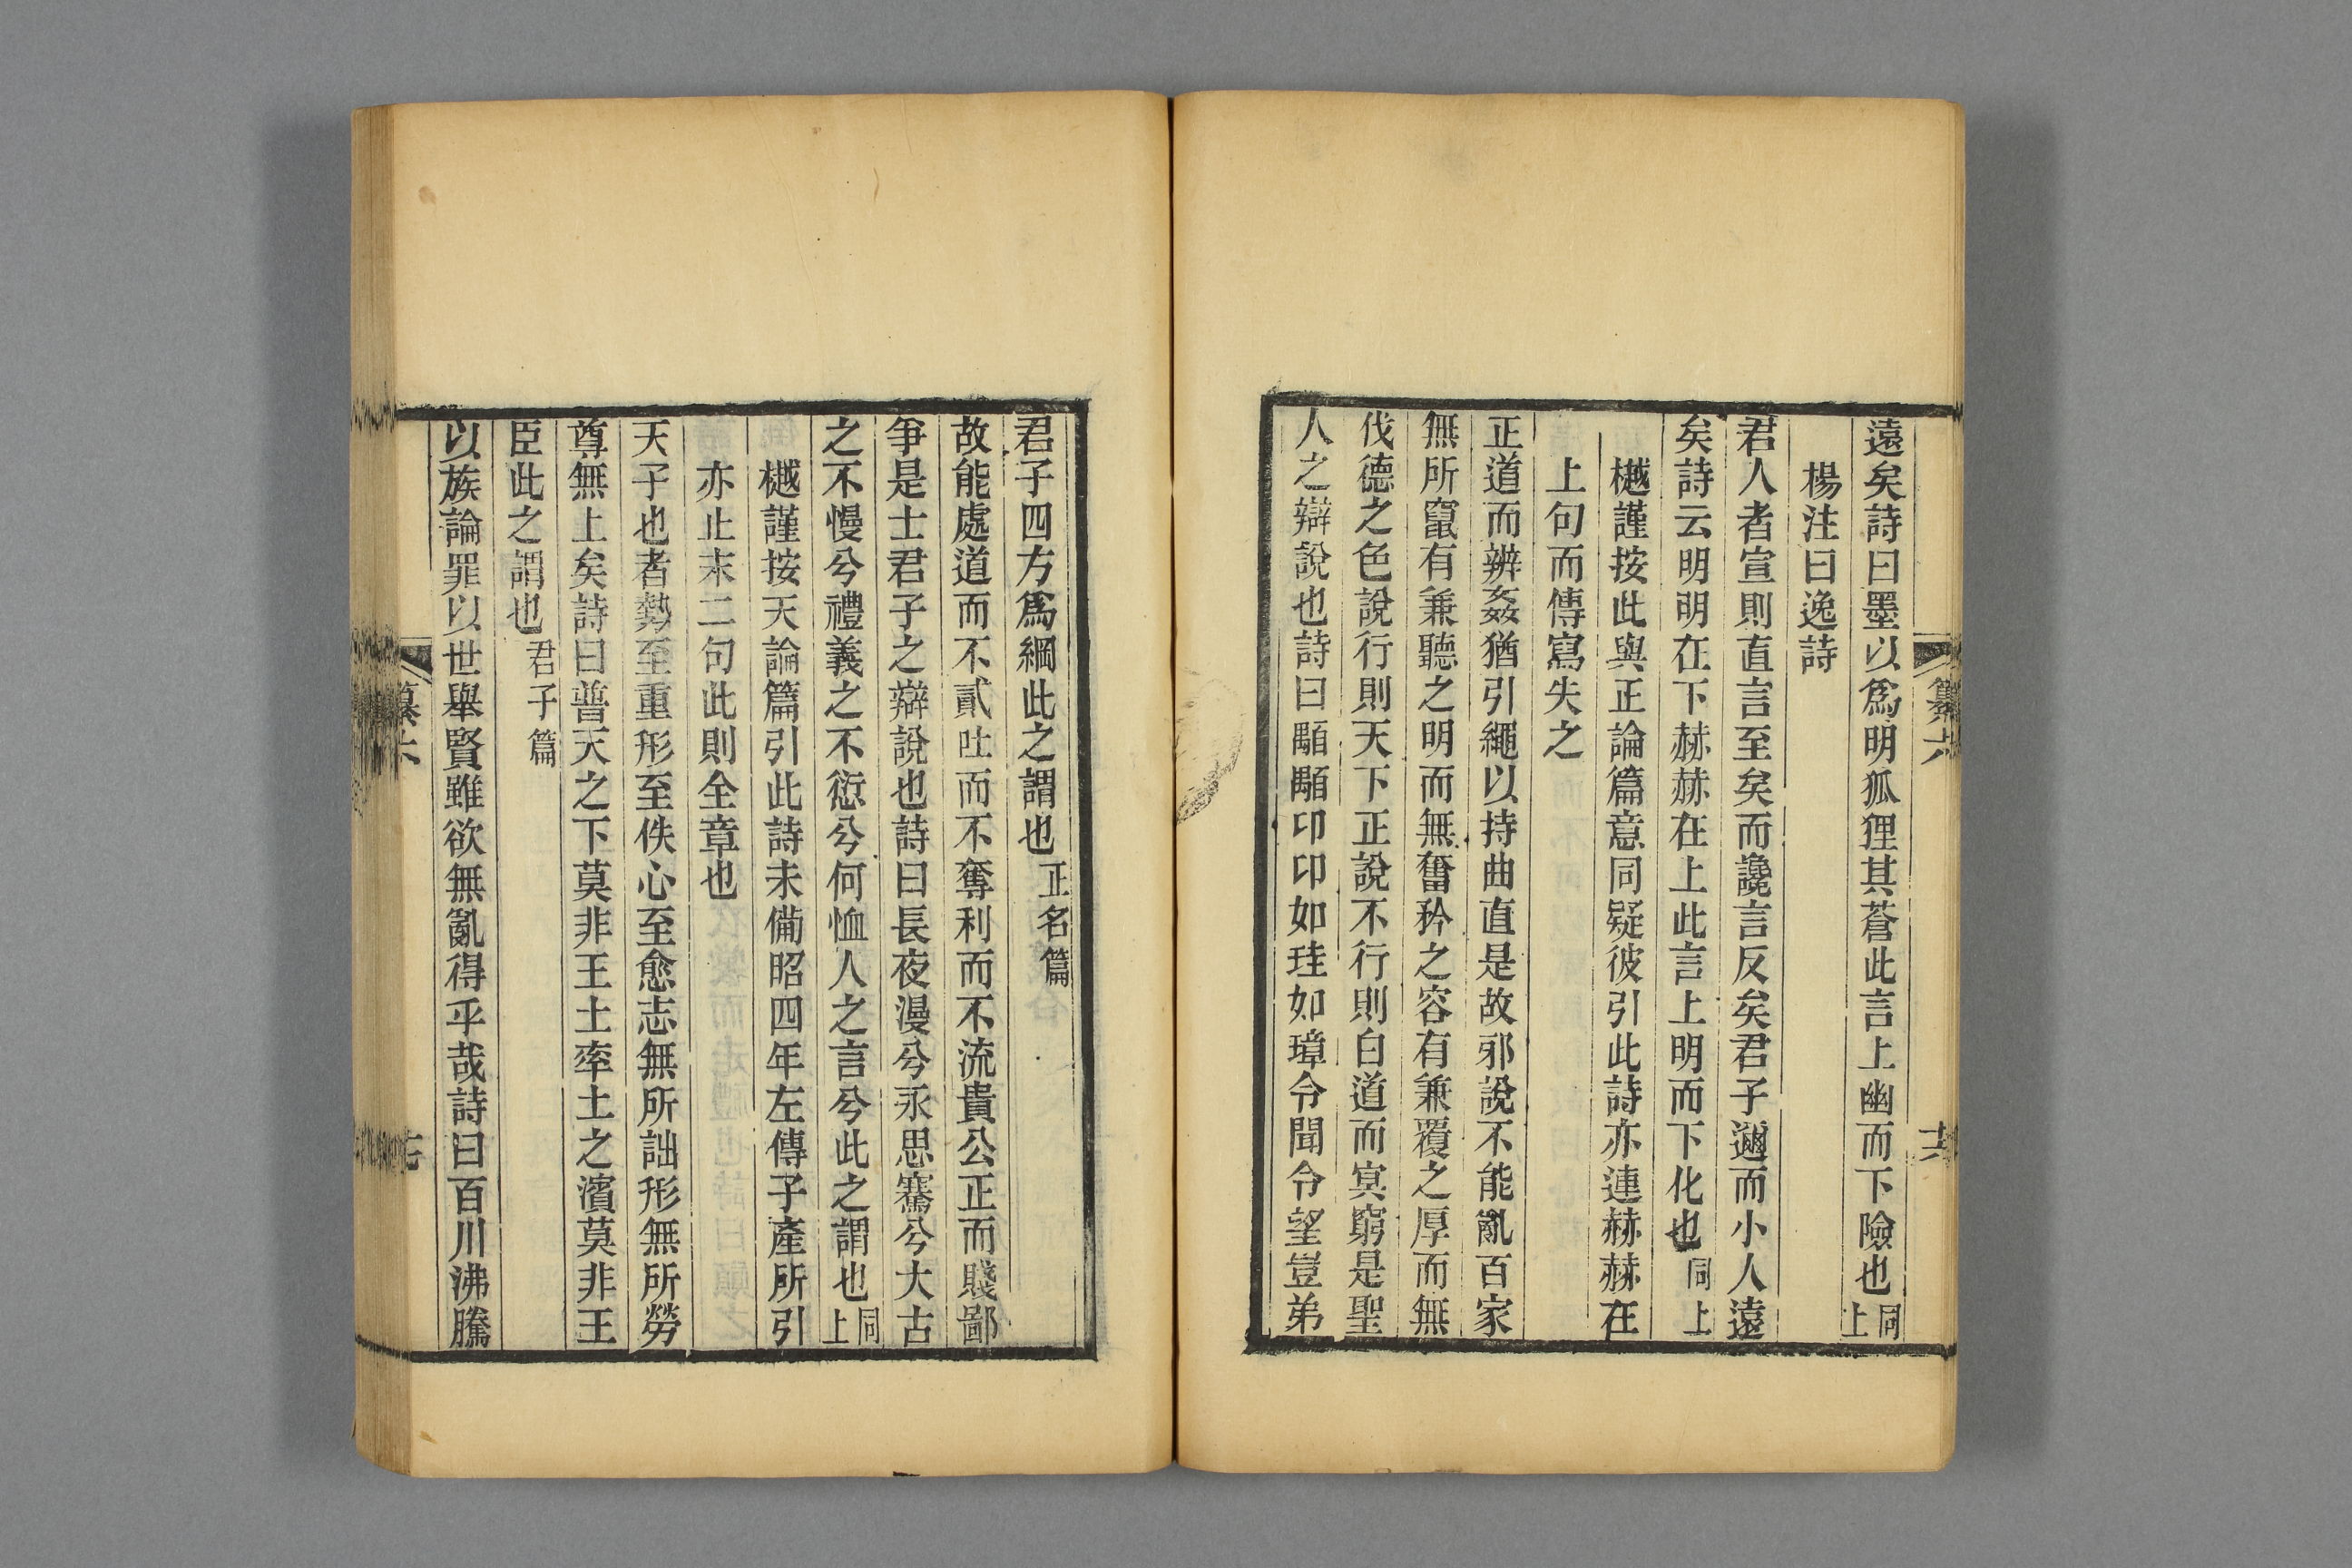 遠矣詩曰墨以爲明狐狸其蒼此言上幽而下險也同上
楊注曰逸詩
君人者宣則直言至矣而讒言反矣君子邇而小人遠
矣詩云明明在下赫赫在上此言上明而下化也同上
樾謹按此與正論篇意同疑彼引此詩亦連赫赫在
上句而傳寫失之
正道而辨姦猶引繩以持曲直是故邪說不能亂百家
無所竄有兼聽之明而無奮矜之容有兼覆之厚而無
伐德之色說行則天下正說不行則白道而冥窮是聖
人之辯說也詩曰顒顒卬卬如珪如璋令聞令望豈弟
纂六
十六
君子四方爲綱此之謂也正名篇
故能處道而不貳吐而不奪利而不流貴公正而賤鄙
爭是士君子之辯說也詩曰長夜漫兮永思騫兮大古
之不慢兮禮義之不愆兮何恤人之言兮此之謂也同上
樾謹按天論篇引此詩未備昭四年左傳子產所引
亦止末二句此則全章也
天子也者勢至重形至佚心至愈志無所詘形無所勞
尊無上矣詩曰普天之下莫非王土率土之濱莫非王
臣此之謂也君子篇
以族論罪以世舉賢雖欲無亂得乎哉詩曰百川沸騰
纂六